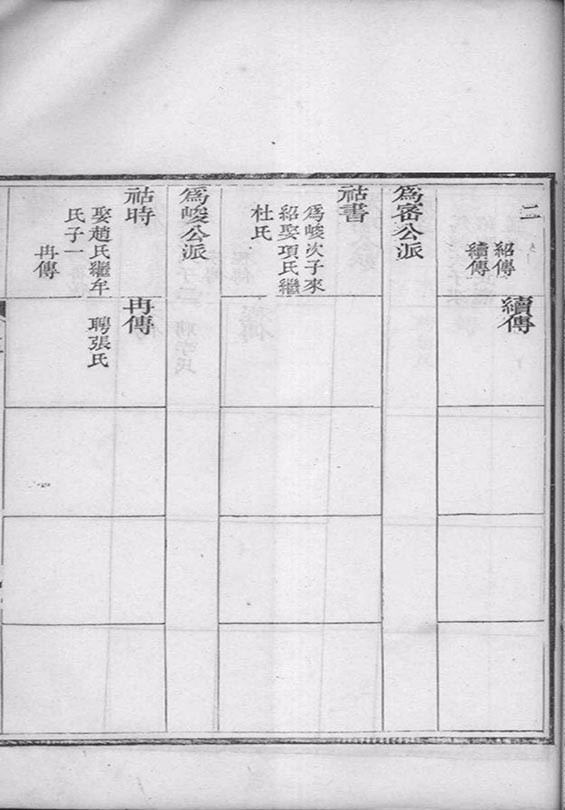 二
紹傳
續傳
續傳
爲審公派
祜書
爲峻次子來
紹娶項氏繼
杜氏
爲峻公派
祜時
娶趙氏繼牟
氏子一
冉傳
冉傳
聘張氏